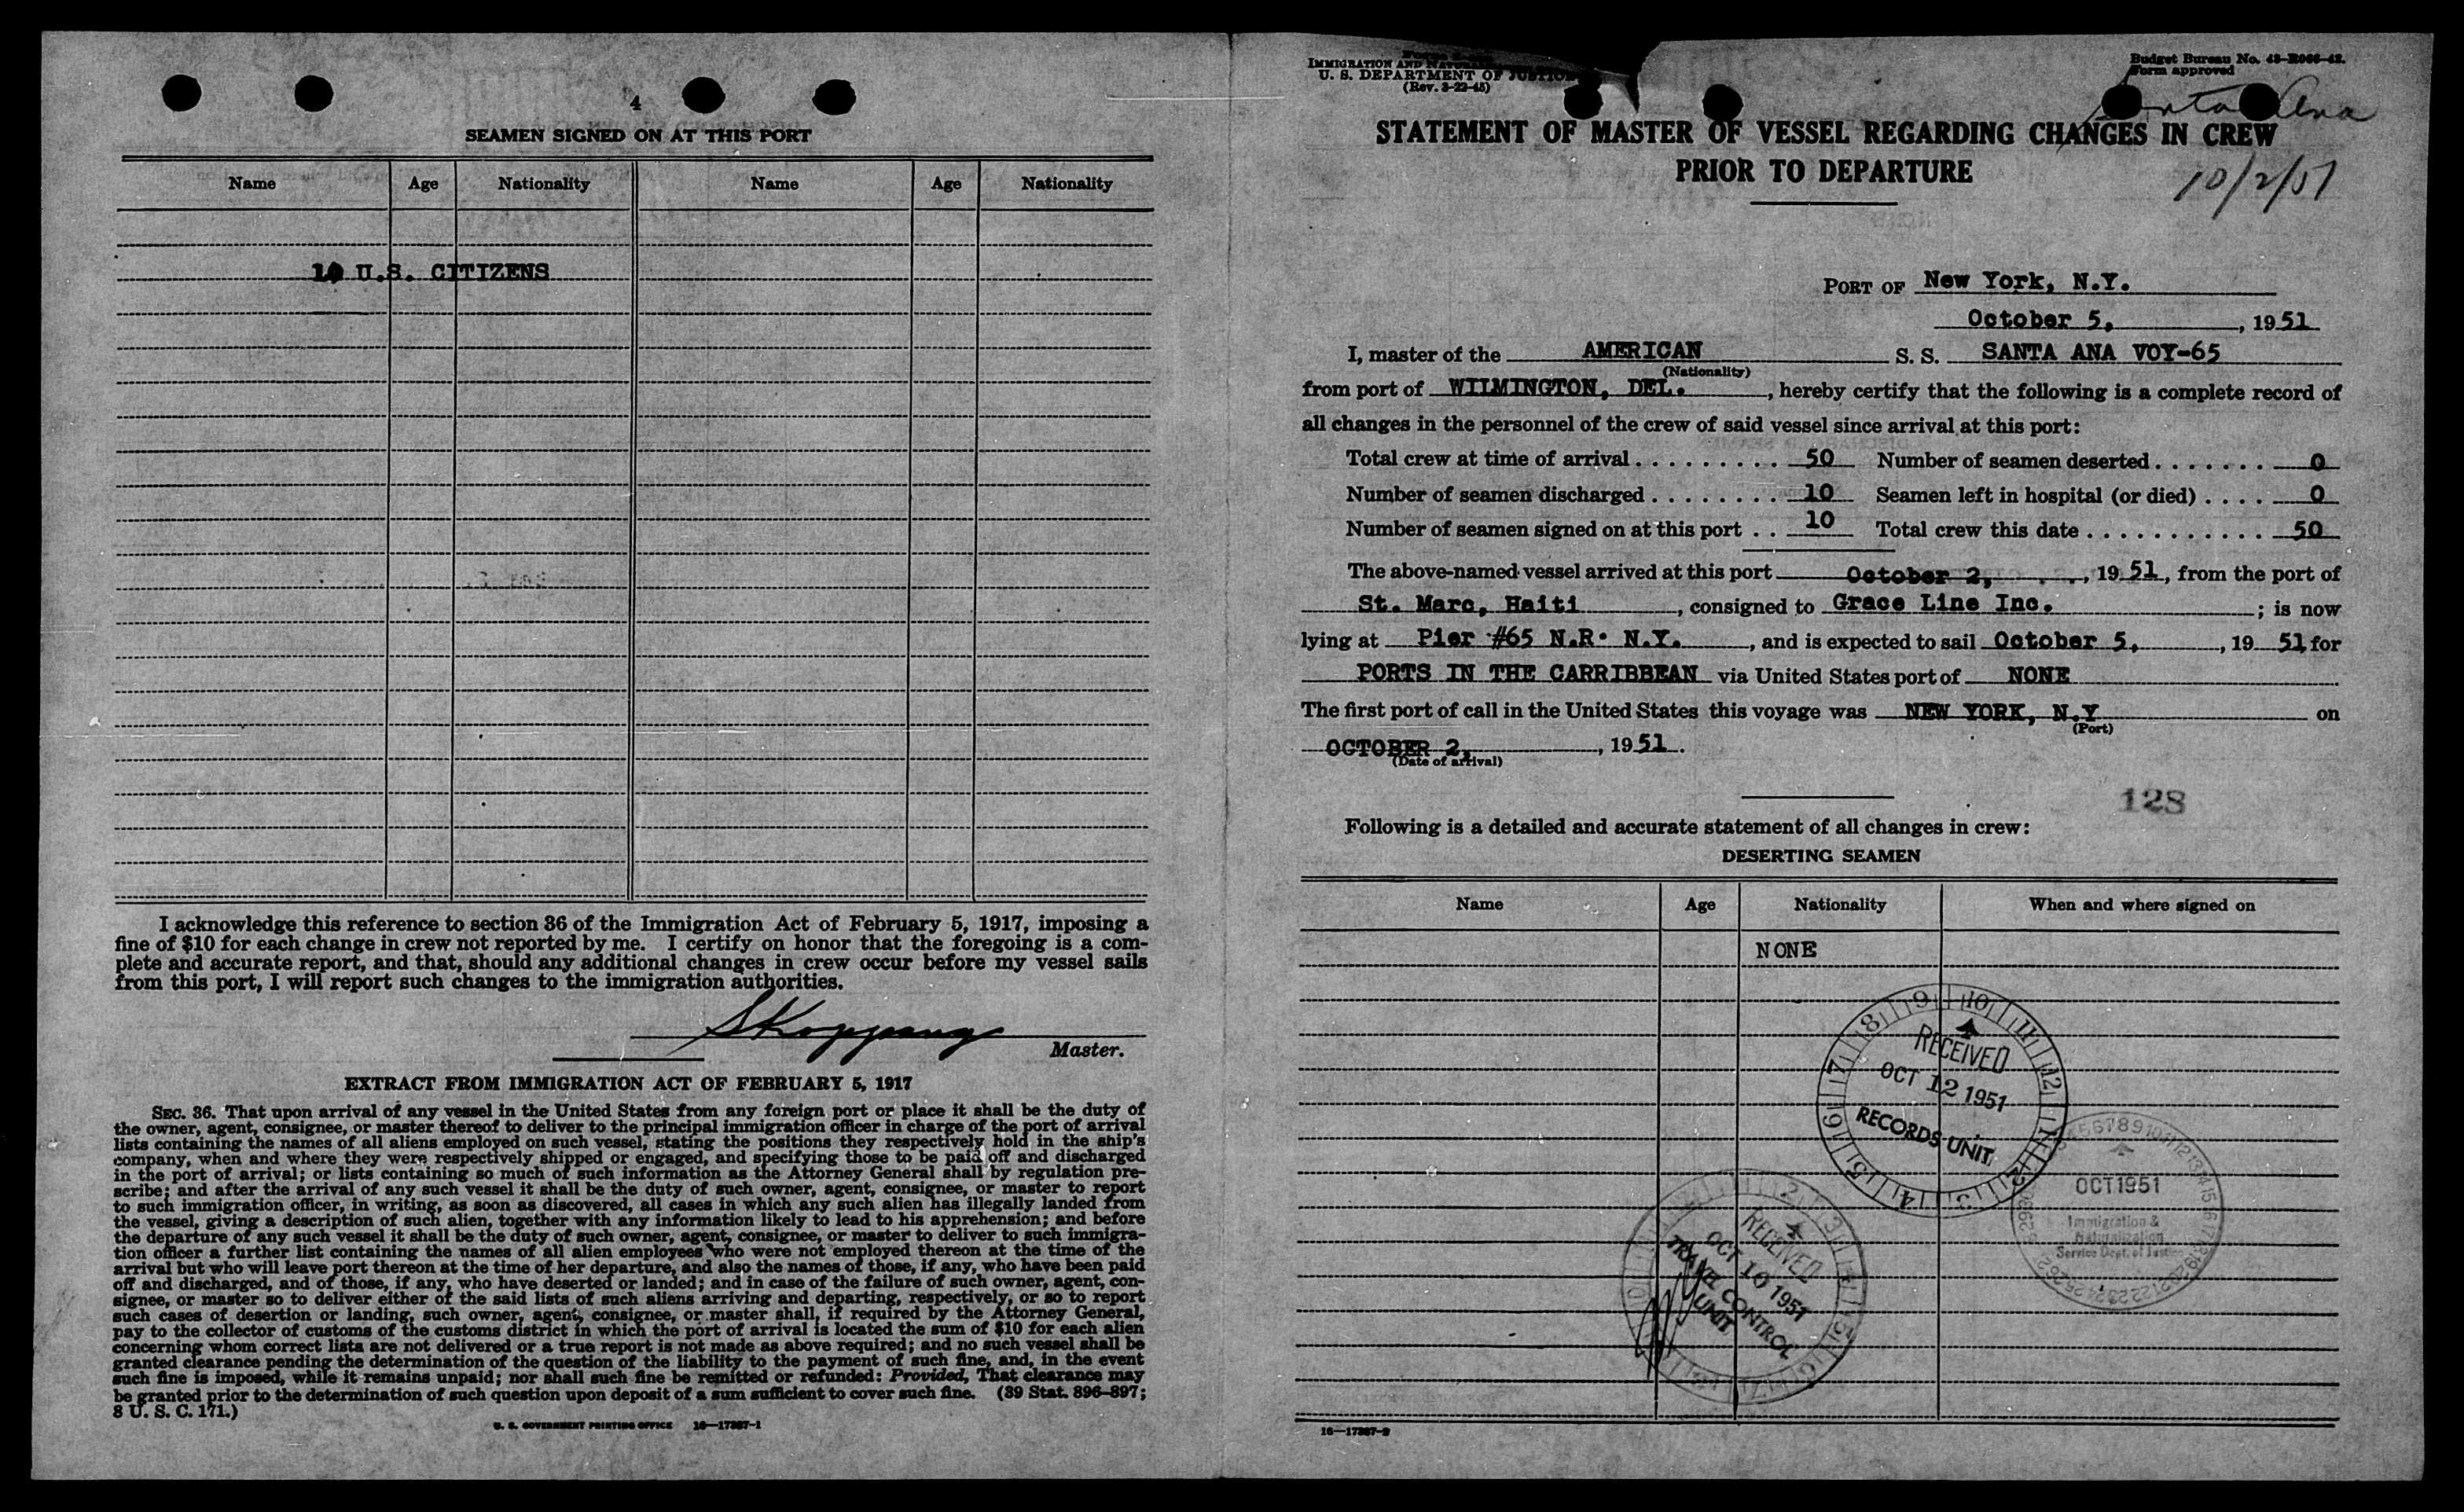 4
SEAMEN SIGNED ON AT THIS PORT
Name Age Nationality Name Age Nationality
10 U.S. CITIZENS
I acknowledge this reference to section 36 of the Immigration Act of February 5, 1917, imposing a
fine of $10 for each change in crew not reported by me. I certify on honor that the foregoing is a com-
plete and accurate report, and that, should any additional changes in crew occur before my vessel sails
from this port, I will report such changes to the immigration authorities.
Master.
EXTRACT FROM IMMIGRATION ACT OF FEBRUARY 5, 1917
SEC. 36. That upon arrival of any vessel in the United States from any foreign port or place it shall be the duty of
the owner, agent, consignee, or master thereof to deliver to the principal immigration officer in charge of the port of arrival
lists containing the names of all aliens employed on such vessel, stating the positions they respectively hold in the ship's
company, when and where they were respectively shipped or engaged, and specifying those to be paid off and discharged
in the port of arrival; or lists containing so much of such information as the Attorney General shall by regulation pre-
scribe; and after the arrival of any such vessel it shall be the duty of such owner, agent, consignee, or master to report
to such immigration officer, in writing, as soon as discovered, all cases in which any such alien has illegally landed from
the vessel, giving a description of such alien, together with any information likely to lead to his apprehension; and before
the departure of any such vessel it shall be the duty of such owner, agent, consignee, or master to deliver to such immigra-
tion officer a further list containing the names of all alien employees who were not employed thereon at the time of the
arrival but who will leave port thereon at the time of her departure, and also the names of those, if any, who have been paid
off and discharged, and of those, if any, who have deserted or landed; and in case of the failure of such owner, agent, con-
signee, or master so to deliver either of the said lists of such aliens arriving and departing, respectively, or so to report
such cases of desertion or landing, such owner, agent, consignee, or master shall, if required by the Attorney General,
pay to the collector of customs of the customs district in which the port of arrival is located the sum of $10 for each alien
concerning whom correct lists are not delivered or a true report is not made as above required; and no such vessel shall be
granted clearance pending the determination of the question of the liability to the payment of such fine, and, in the event
such fine is imposed, while it remains unpaid; nor shall such fine be remitted or refunded: Provided, That clearance may
be granted prior to the determination of such question upon deposit of a sum sufficient to cover such fine. (39 Stat. 896-897;
8 U. S. C. 171.)
U. S. GOVERNMENT PRINTING OFFICE 16—17387-1
IMMIGRATION AND
U. S. DEPARTMENT OF JUSTICE
(Rev. 3-22-45)
Budget Bureau No. 43-R066-42.
Form approved
Ana
STATEMENT OF MASTER OF VESSEL REGARDING CHANGES IN CREW
PRIOR TO DEPARTURE
10/2/51
PORT OF New York, N.Y.
October 5, , 1951
I, master of the AMERICAN S. S. SANTA ANA VOY-65
(Nationality)
from port of WILMINGTON, DEL. , hereby certify that the following is a complete record of
all changes in the personnel of the crew of said vessel since arrival at this port:
Total crew at time of arrival . . . . . . . . . . 50 Number of seamen deserted . . . . . . . 0
Number of seamen discharged . . . . . . . . 10 Seamen left in hospital (or died) . . . . 0
Number of seamen signed on at this port . . 10 Total crew this date . . . . . . . . . . . . 50
The above-named vessel arrived at this port October 2, , 1951, from the port of
St. Marc, Haiti , consigned to Grace Line Inc. ; is now
lying at Pier #65 N.R. N.Y. , and is expected to sail October 5, , 19 51 for
PORTS IN THE CARRIBBEAN via United States port of NONE
The first port of call in the United States this voyage was NEW YORK, N.Y on
(Port)
OCTOBER 2, , 1951.
(Date of arrival)
128
Following is a detailed and accurate statement of all changes in crew:
DESERTING SEAMEN
Name Age Nationality When and where signed on
NONE
RECEIVED
OCT 12 1951
RECORDS UNIT
OCT 1951
Immigration &
Naturalization
Service Dept. of Justice
RECEIVED
OCT 10 1951
TRAVEL CONTROL
UNIT
16—17387-2